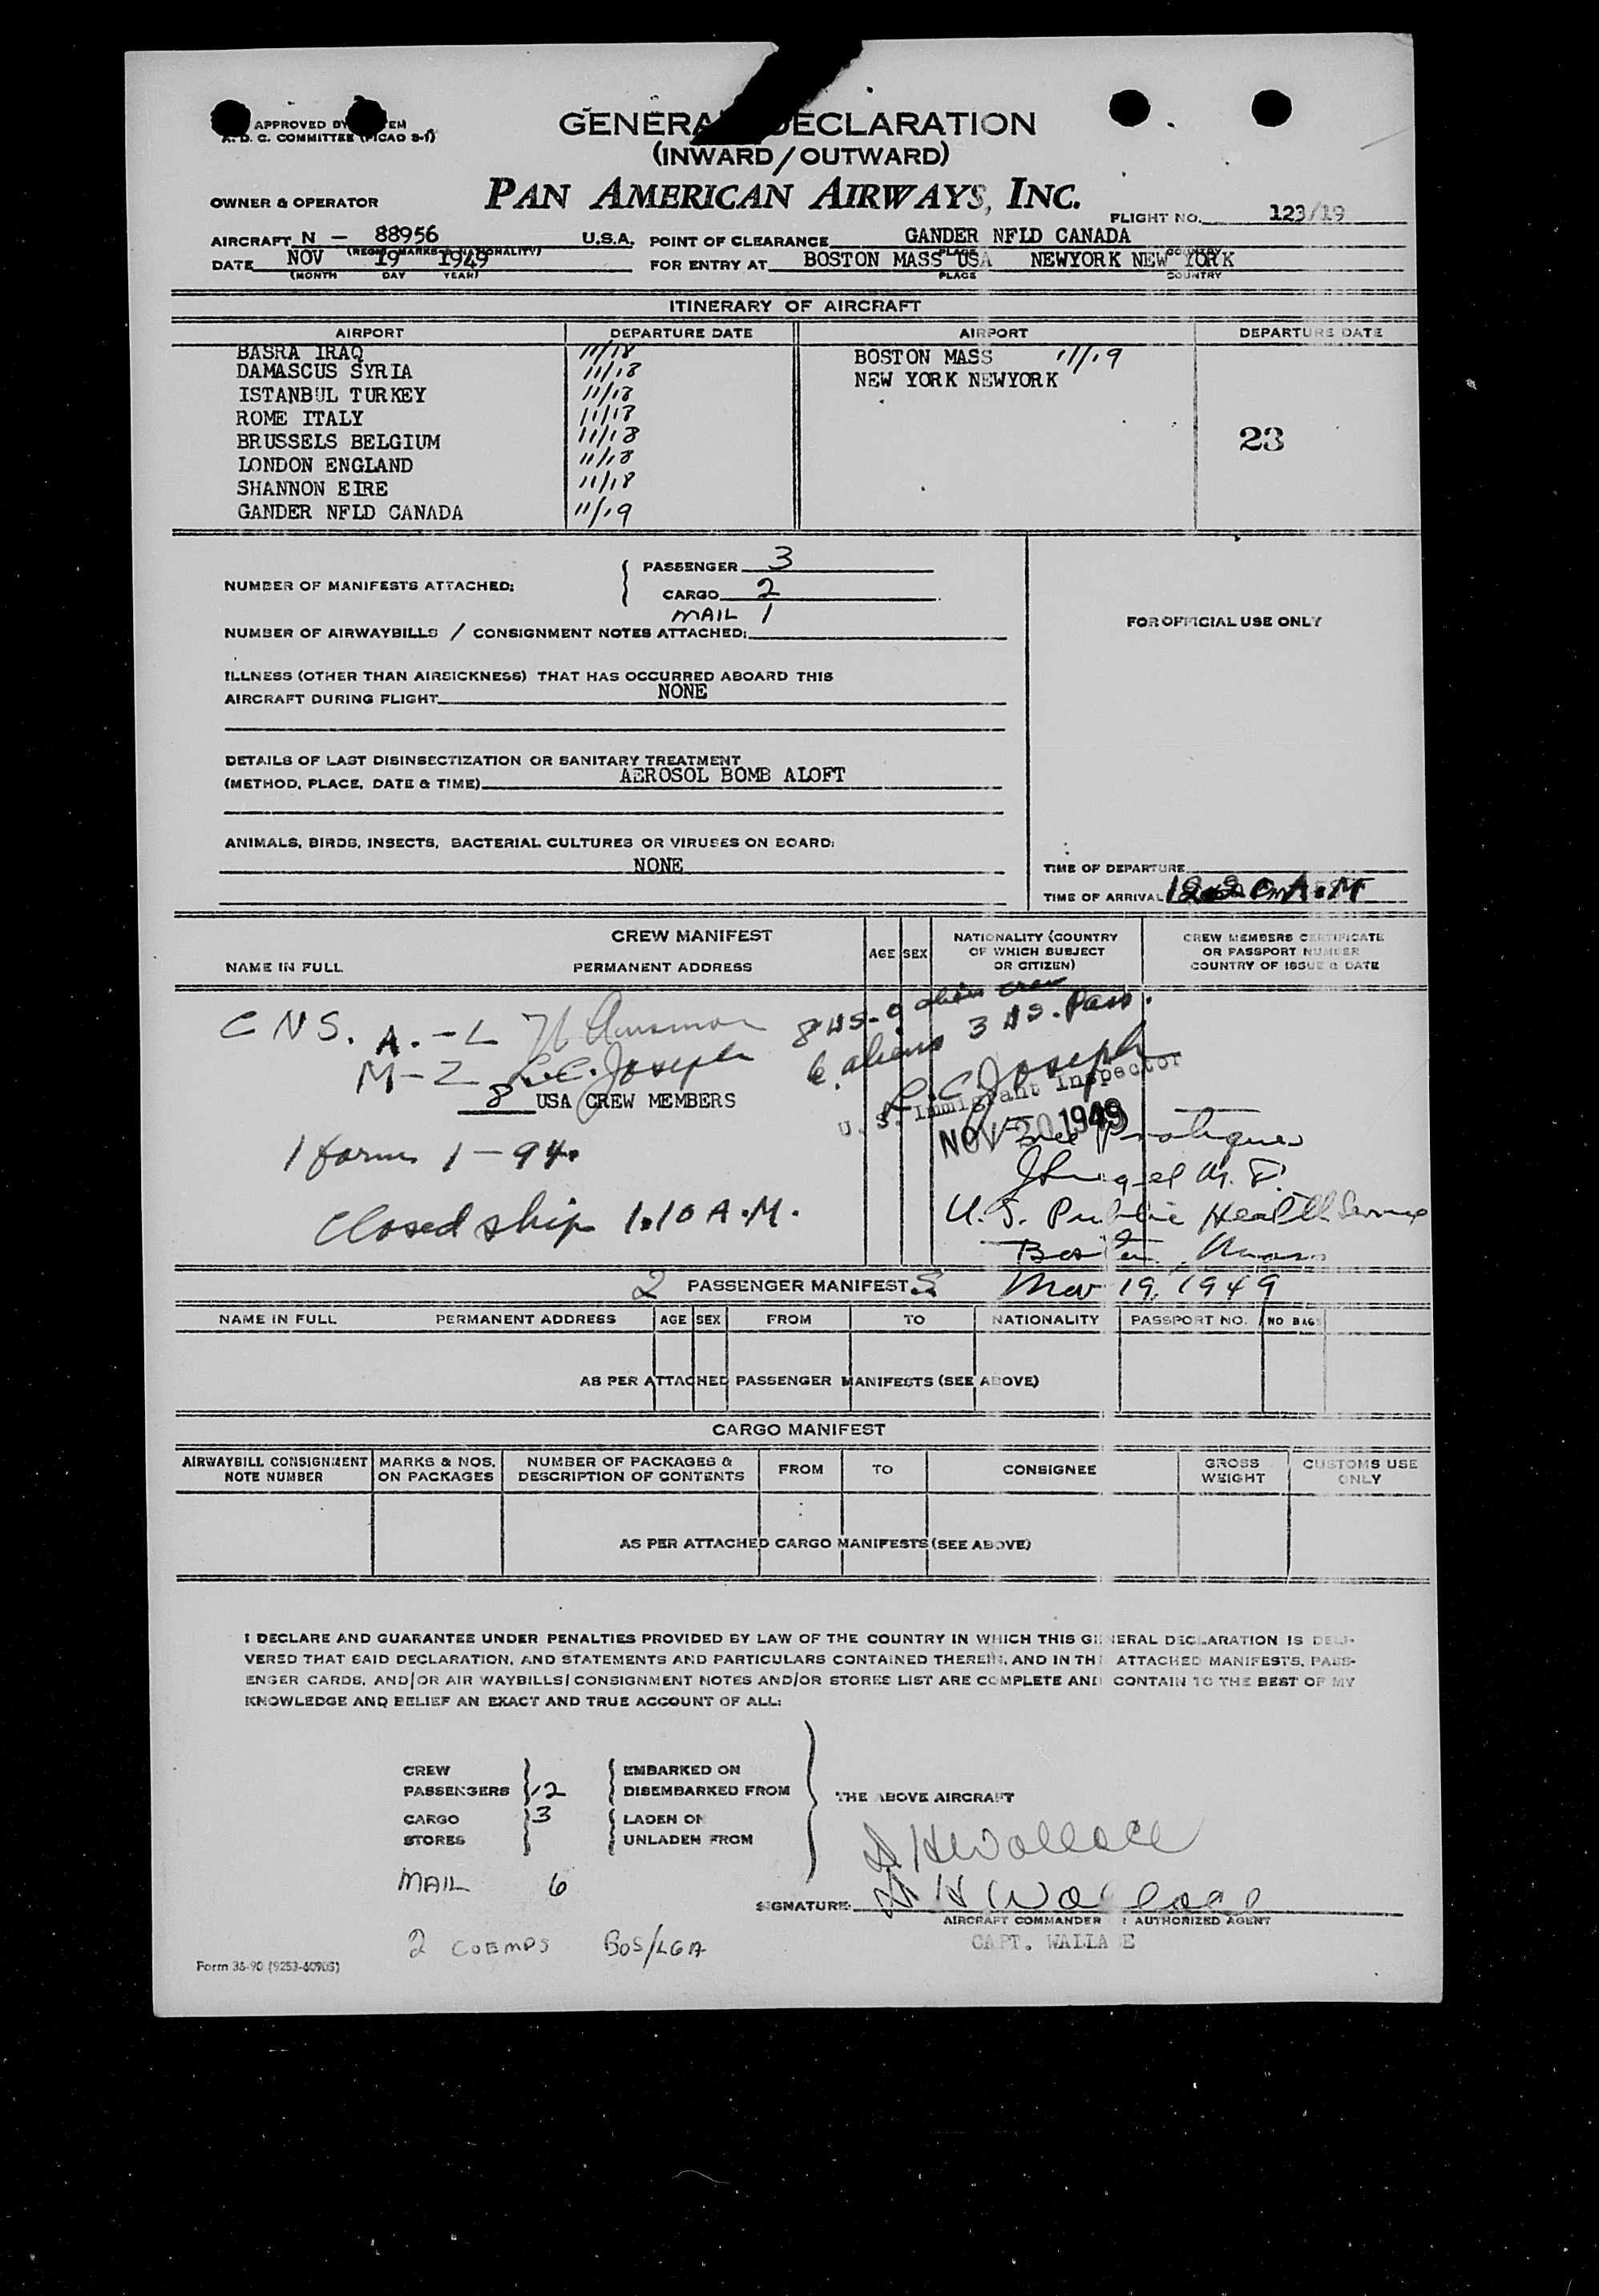 APPROVED BY EM
A. D. C. COMMITTEE (PICAO 3-1)
GENERA DECLARATION
(INWARD/OUTWARD)
OWNER & OPERATOR PAN AMERICAN AIRWAYS, INC.
FLIGHT NO. 123/19
AIRCRAFT N - 88956 U.S.A. POINT OF CLEARANCE GANDER NFLD CANADA
(REG. MARKS & NATIONALITY) PLACE COUNTRY
DATE NOV 19 1949 FOR ENTRY AT BOSTON MASS USA NEWYORK NEW YORK
(MONTH DAY YEAR) PLACE COUNTRY
ITINERARY OF AIRCRAFT
AIRPORT DEPARTURE DATE AIRPORT DEPARTURE DATE
BASRA IRAQ 11/18 BOSTON MASS 11/19
DAMASCUS SYRIA 11/18 NEW YORK NEWYORK
ISTANBUL TURKEY 11/18
ROME ITALY 11/18
BRUSSELS BELGIUM 11/18 23
LONDON ENGLAND 11/18
SHANNON EIRE 11/18
GANDER NFLD CANADA 11/19
PASSENGER 3
NUMBER OF MANIFESTS ATTACHED:
CARGO 2
MAIL 1
FOR OFFICIAL USE ONLY
NUMBER OF AIRWAYBILLS / CONSIGNMENT NOTES ATTACHED:
ILLNESS (OTHER THAN AIRSICKNESS) THAT HAS OCCURRED ABOARD THIS
AIRCRAFT DURING FLIGHT NONE
DETAILS OF LAST DISINSECTIZATION OR SANITARY TREATMENT
(METHOD, PLACE, DATE & TIME) AEROSOL BOMB ALOFT
ANIMALS, BIRDS, INSECTS, BACTERIAL CULTURES OR VIRUSES ON BOARD:
NONE
TIME OF DEPARTURE
TIME OF ARRIVAL A.M
CREW MANIFEST
NAME IN FULL PERMANENT ADDRESS AGE SEX NATIONALITY (COUNTRY OF WHICH SUBJECT OR CITIZEN) CREW MEMBERS CERTIFICATE OR PASSPORT NUMBER COUNTRY OF ISSUE & DATE
8 US-0 alien crew
6 aliens 3 US. Pass.
C N S. A.-L
M-Z L.C. Joseph
L.C. Joseph
U. S. Immigrant Inspector
8 USA CREW MEMBERS
NOV 20 1949
Free Pratique
1 form 1-94.
M. D.
Closed ship 1.10 A.M.
U.S. Public Health Service
Boston, Mass
2 PASSENGER MANIFEST S
Nov 19, 1949
NAME IN FULL PERMANENT ADDRESS AGE SEX FROM TO NATIONALITY PASSPORT NO. NO BAGS
AS PER ATTACHED PASSENGER MANIFESTS (SEE ABOVE)
CARGO MANIFEST
AIRWAYBILL CONSIGNMENT NOTE NUMBER MARKS & NOS. ON PACKAGES NUMBER OF PACKAGES & DESCRIPTION OF CONTENTS FROM TO CONSIGNEE GROSS WEIGHT CUSTOMS USE ONLY
AS PER ATTACHED CARGO MANIFESTS (SEE ABOVE)
I DECLARE AND GUARANTEE UNDER PENALTIES PROVIDED BY LAW OF THE COUNTRY IN WHICH THIS GENERAL DECLARATION IS DELI-
VERED THAT SAID DECLARATION, AND STATEMENTS AND PARTICULARS CONTAINED THEREIN, AND IN THE ATTACHED MANIFESTS, PASS-
ENGER CARDS, AND/OR AIR WAYBILLS/CONSIGNMENT NOTES AND/OR STORES LIST ARE COMPLETE AND CONTAIN TO THE BEST OF MY
KNOWLEDGE AND BELIEF AN EXACT AND TRUE ACCOUNT OF ALL:
CREW EMBARKED ON
PASSENGERS 12 DISEMBARKED FROM THE ABOVE AIRCRAFT
CARGO 3 LADEN ON
STORES UNLADEN FROM
D H Wallace
MAIL 6
SIGNATURE D H Wallace
AIRCRAFT COMMANDER AUTHORIZED AGENT
2 COEMPS BOS/LGA
CAPT. WALLA E
Form 36-90 (9253-6090S)